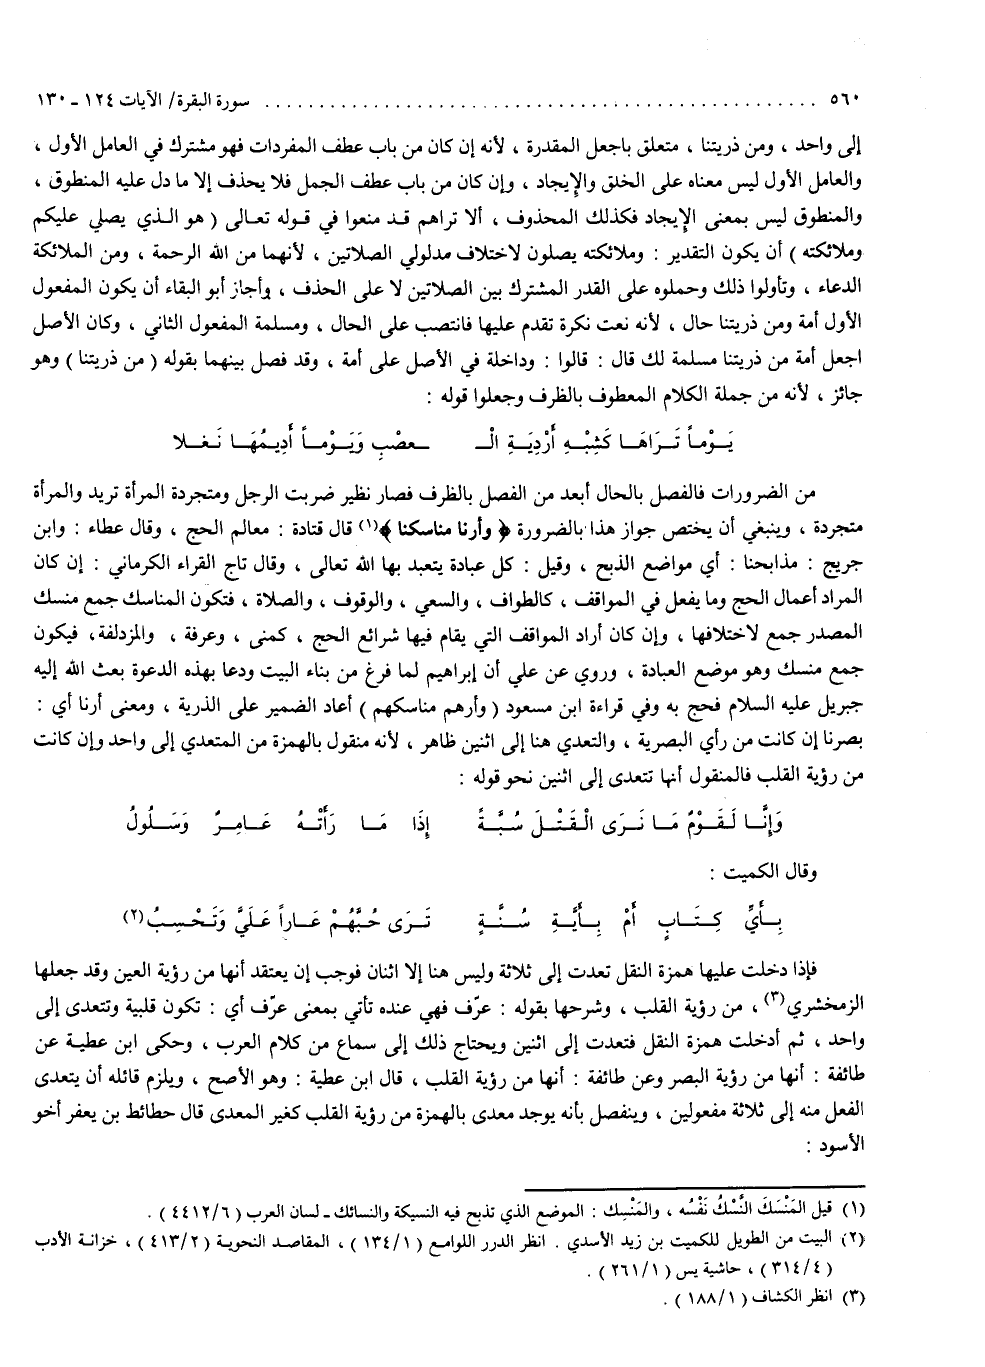 ٥٦٠ ................................................ سورة البقرة/ الآيات ١٢٤ ـ ١٣٠
إلى واحد ، ومن ذريتنا ، متعلق باجعل المقدرة ، لأنه إن كان من باب عطف المفردات فهو مشترك في العامل الأول ،
والعامل الأول ليس معناه على الخلق والإيجاد ، وإن كان من باب عطف الجمل فلا يحذف إلا ما دل عليه المنطوق ،
والمنطوق ليس بمعنى الإيجاد فكذلك المحذوف ، ألا تراهم قد منعوا في قوله تعالى ( هو الذي يصلي عليكم
وملائكته ) أن يكون التقدير : وملائكته يصلون لاختلاف مدلولي الصلاتين ، لأنهما من الله الرحمة ، ومن الملائكة
الدعاء ، وتأولوا ذلك وحملوه على القدر المشترك بين الصلاتين لا على الحذف ، وأجاز أبو البقاء أن يكون المفعول
الأول أمة ومن ذريتنا حال ، لأنه نعت نكرة تقدم عليها فانتصب على الحال ، ومسلمة المفعول الثاني ، وكان الأصل
اجعل أمة من ذريتنا مسلمة لك قال : قالوا : وداخلة في الأصل على أمة ، وقد فصل بينهما بقوله ( من ذريتنا ) وهو
جائز ، لأنه من جملة الكلام المعطوف بالظرف وجعلوا قوله :
يَوْماً تَرَاهَا كَشِبْهِ أَرْدِيَةِ الْـ ـعصْبِ وَيَوْماً أَدِيمُهَا نَغلا
من الضرورات فالفصل بالحال أبعد من الفصل بالظرف فصار نظير ضربت الرجل ومتجردة المرأة تريد والمرأة
متجردة ، وينبغي أن يختص جواز هذا بالضرورة ﴿ وأرنا مناسكنا ﴾(١) قال قتادة : معالم الحج ، وقال عطاء : وابن
جريج : مذابحنا : أي مواضع الذبح ، وقيل : كل عبادة يتعبد بها الله تعالى ، وقال تاج القراء الكرماني : إن كان
المراد أعمال الحج وما يفعل في المواقف ، كالطواف ، والسعي ، والوقوف ، والصلاة ، فتكون المناسك جمع منسك
المصدر جمع لاختلافها ، وإن كان أراد المواقف التي يقام فيها شرائع الحج ، كمنى ، وعرفة ، والمزدلفة، فيكون
جمع منسك وهو موضع العبادة ، وروي عن علي أن إبراهيم لما فرغ من بناء البيت ودعا بهذه الدعوة بعث الله إليه
جبريل عليه السلام فحج به وفي قراءة ابن مسعود ( وأرهم مناسكهم ) أعاد الضمير على الذرية ، ومعنى أرنا أي :
بصرنا إن كانت من رأي البصرية ، والتعدي هنا إلى اثنين ظاهر ، لأنه منقول بالهمزة من المتعدي إلى واحد وإن كانت
من رؤية القلب فالمنقول أنها تتعدى إلى اثنين نحو قوله :
وَإِنَّا لَقَوْمٌ مَا نَرَى الْقَتْلَ سُبَّةً إِذَا مَا رَأَتْهُ عَامِرٌ وَسَلُولُ
وقال الكميت :
بِأَيِّ كِتَابٍ أَمْ بِأَيَّةِ سُنَّةٍ تَرَى حُبَّهُمْ عَاراً عَلَيَّ وَتَحْسِبُ(٢)
فإذا دخلت عليها همزة النقل تعدت إلى ثلاثة وليس هنا إلا اثنان فوجب إن يعتقد أنها من رؤية العين وقد جعلها
الزمخشري(٣) ، من رؤية القلب ، وشرحها بقوله : عرّف فهي عنده تأتي بمعنى عرّف أي : تكون قلبية وتتعدى إلى
واحد ، ثم أدخلت همزة النقل فتعدت إلى اثنين ويحتاج ذلك إلى سماع من كلام العرب ، وحكى ابن عطية عن
طائفة : أنها من رؤية البصر وعن طائفة : أنها من رؤية القلب ، قال ابن عطية : وهو الأصح ، ويلزم قائله أن يتعدى
الفعل منه إلى ثلاثة مفعولين ، وينفصل بأنه يوجد معدى بالهمزة من رؤية القلب كغير المعدى قال حطائط بن يعفر أخو
الأسود :
(١) قيل المَنْسَكَ النُّسْكُ نَفْسُه ، والمَنْسِك : الموضع الذي تذبح فيه النسيكة والنسائك ـ لسان العرب ( ٤٤١٢/٦ ) .
(٢) البيت من الطويل للكميت بن زيد الأسدي . انظر الدرر اللوامع ( ١٣٤/١ ) ، المقاصد النحوية ( ٤١٣/٢ ) ، خزانة الأدب
( ٣١٤/٤ ) ، حاشية يس ( ٢٦١/١ ) .
(٣) انظر الكشاف ( ١٨٨/١ ) .